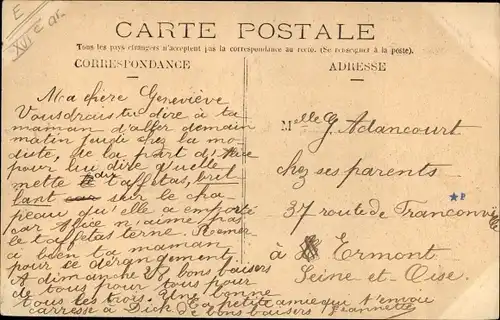 E
XVIe ar.
CARTE POSTALE
Tous les pays étrangers n'acceptent pas la correspondance au recto. (Se renseigner à la poste).
CORRESPONDANCE
ADRESSE
Ma chère Geneviève
Voudrais tu dire à ta
maman d'aller demain
matin jeudi chez la mo-
diste, de la part d'
pour lui dire qu'elle
mette taffetas, bril
lant sur le cha-
peau qu'elle a emporté
car Alice n'aime pas
le taffetas terne. Remer-
cie bien ta maman
pour le dérangement
A dimanche bons baisers
de tous pour toi
tous les trois. Une bonne
caresse à Dick Ta petite amie qui t'envoie
de bons baisers Jeannette
Melle G. Adancourt
chez ses parents
37 route de Franconville
à Ermont
Seine et Oise.